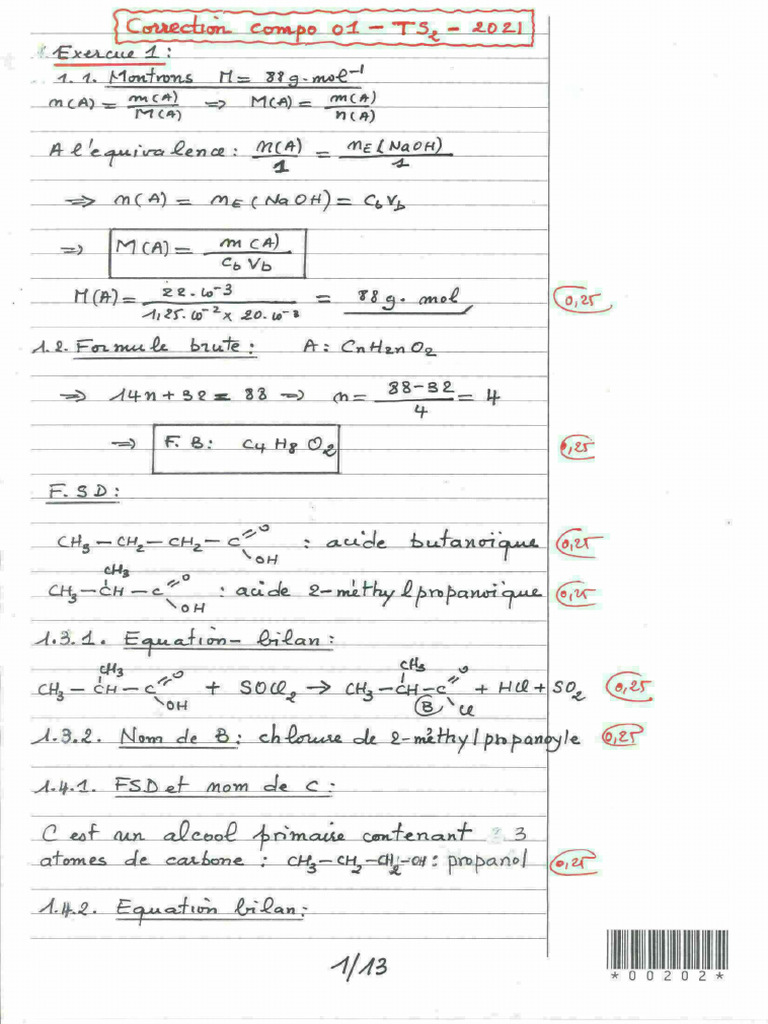 Correction compo 01 - TS2 - 2021
Exercice 1:
1.1. Montrons M = 88 g.mol⁻¹
n(A) = m(A)/M(A) ⇒ M(A) = m(A)/n(A)
A l'équivalence: n(A)/1 = nE(NaOH)/1
⇒ n(A) = nE(NaOH) = CbVb
⇒ M(A) = m(A)/CbVb
M(A) = 22.10⁻³/1,25.10⁻² x 20.10⁻³ = 88 g. mol
0,25
1.2. Formule brute: A: CnH2nO2
⇒ 14n + 32 = 88 ⇒ n = 88-32/4 = 4
⇒ F.B: C4H8O2
0,25
F.SD:
CH3 - CH2 - CH2 - C=O OH : acide butanoïque
0,25
CH3
CH3 - CH - C=O OH : acide 2-méthylpropanoïque
0,25
1.3.1. Equation-bilan:
CH3 CH3
CH3 - CH - C=O OH + SOCl2 → CH3 - CH - C=O Cl + HCl + SO2
B
0,25
1.3.2. Nom de B: chlorure de 2-méthylpropanoyle
0,25
1.4.1. FSD et nom de C:
C est un alcool primaire contenant 3
atomes de carbone : CH3-CH2-CH2-OH: propanol
0,25
1.4.2. Equation bilan:
1/13
*00202*